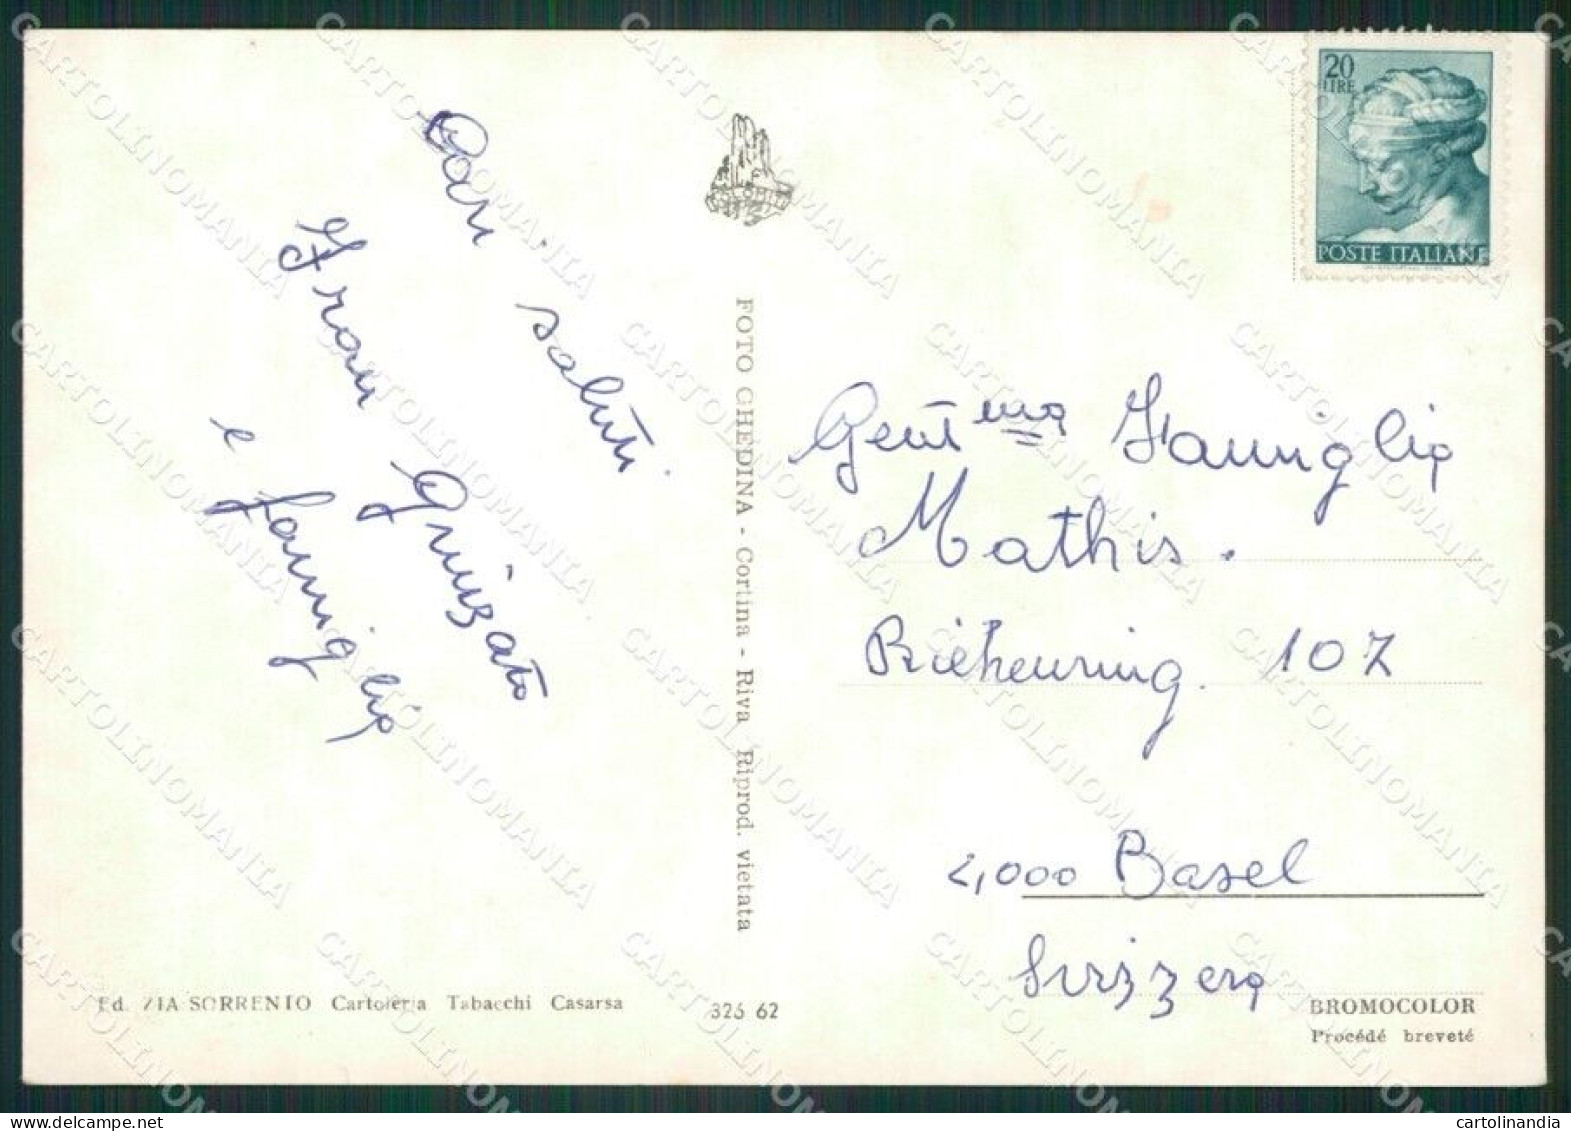 Cari saluti
Frau Grizato
e famiglia
FOTO GHEDINA - Cortina - Riva Riprod. vietata
20
LIRE
POSTE ITALIANE
Gent ma Famiglia
Mathis.
Riehenring. 107
4,000 Basel
Svizzera
Ed. ZIA SORRENTO Cartoleria Tabacchi Casarsa
326 62
BROMOCOLOR
Procédé breveté
CARTOLINOMANIA
cartolinandia